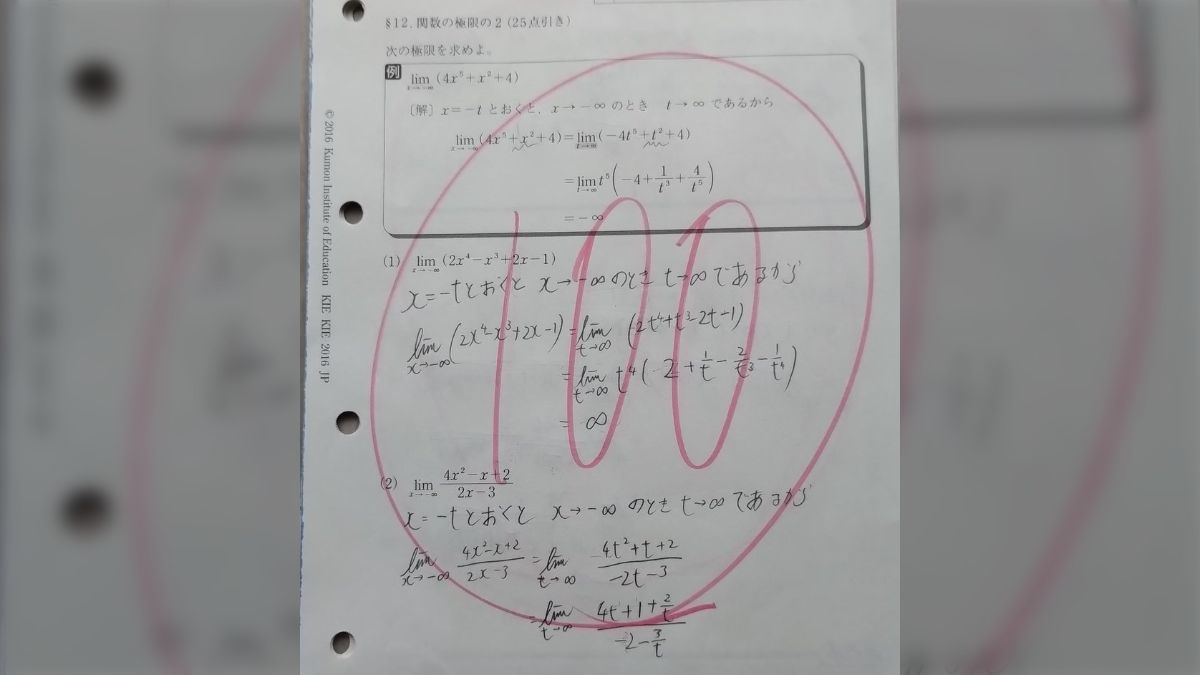 §12. 関数の極限の2 (25点引き)
次の極限を求めよ。
例 lim x→-∞ (4x⁵+x²+4)
〔解〕x=-t とおくと、x→-∞ のとき t→∞ であるから
lim x→-∞ (4x⁵+x²+4)=lim t→∞ (-4t⁵+t²+4)
=lim t→∞ t⁵(-4+1/t³+4/t⁵)
=-∞
(1) lim x→-∞ (2x⁴-x³+2x-1)
x=-tとおくと x→-∞のとき t→∞であるから
lim x→-∞ (2x⁴-x³+2x-1)=lim t→∞ (2t⁴+t³-2t-1)
=lim t→∞ t⁴(2+1/t-2/t³-1/t⁴)
= ∞
(2) lim x→-∞ (4x²-x+2)/(2x-3)
x=-tとおくと x→-∞ のとき t→∞であるから
lim x→-∞ (4x²-x+2)/(2x-3)=lim t→∞ (4t²+t+2)/(-2t-3)
=lim t→∞ (4t+1+2/t)/(-2-3/t)
100
© 2016 Kumon Institute of Education KIE KIE 2016 JP